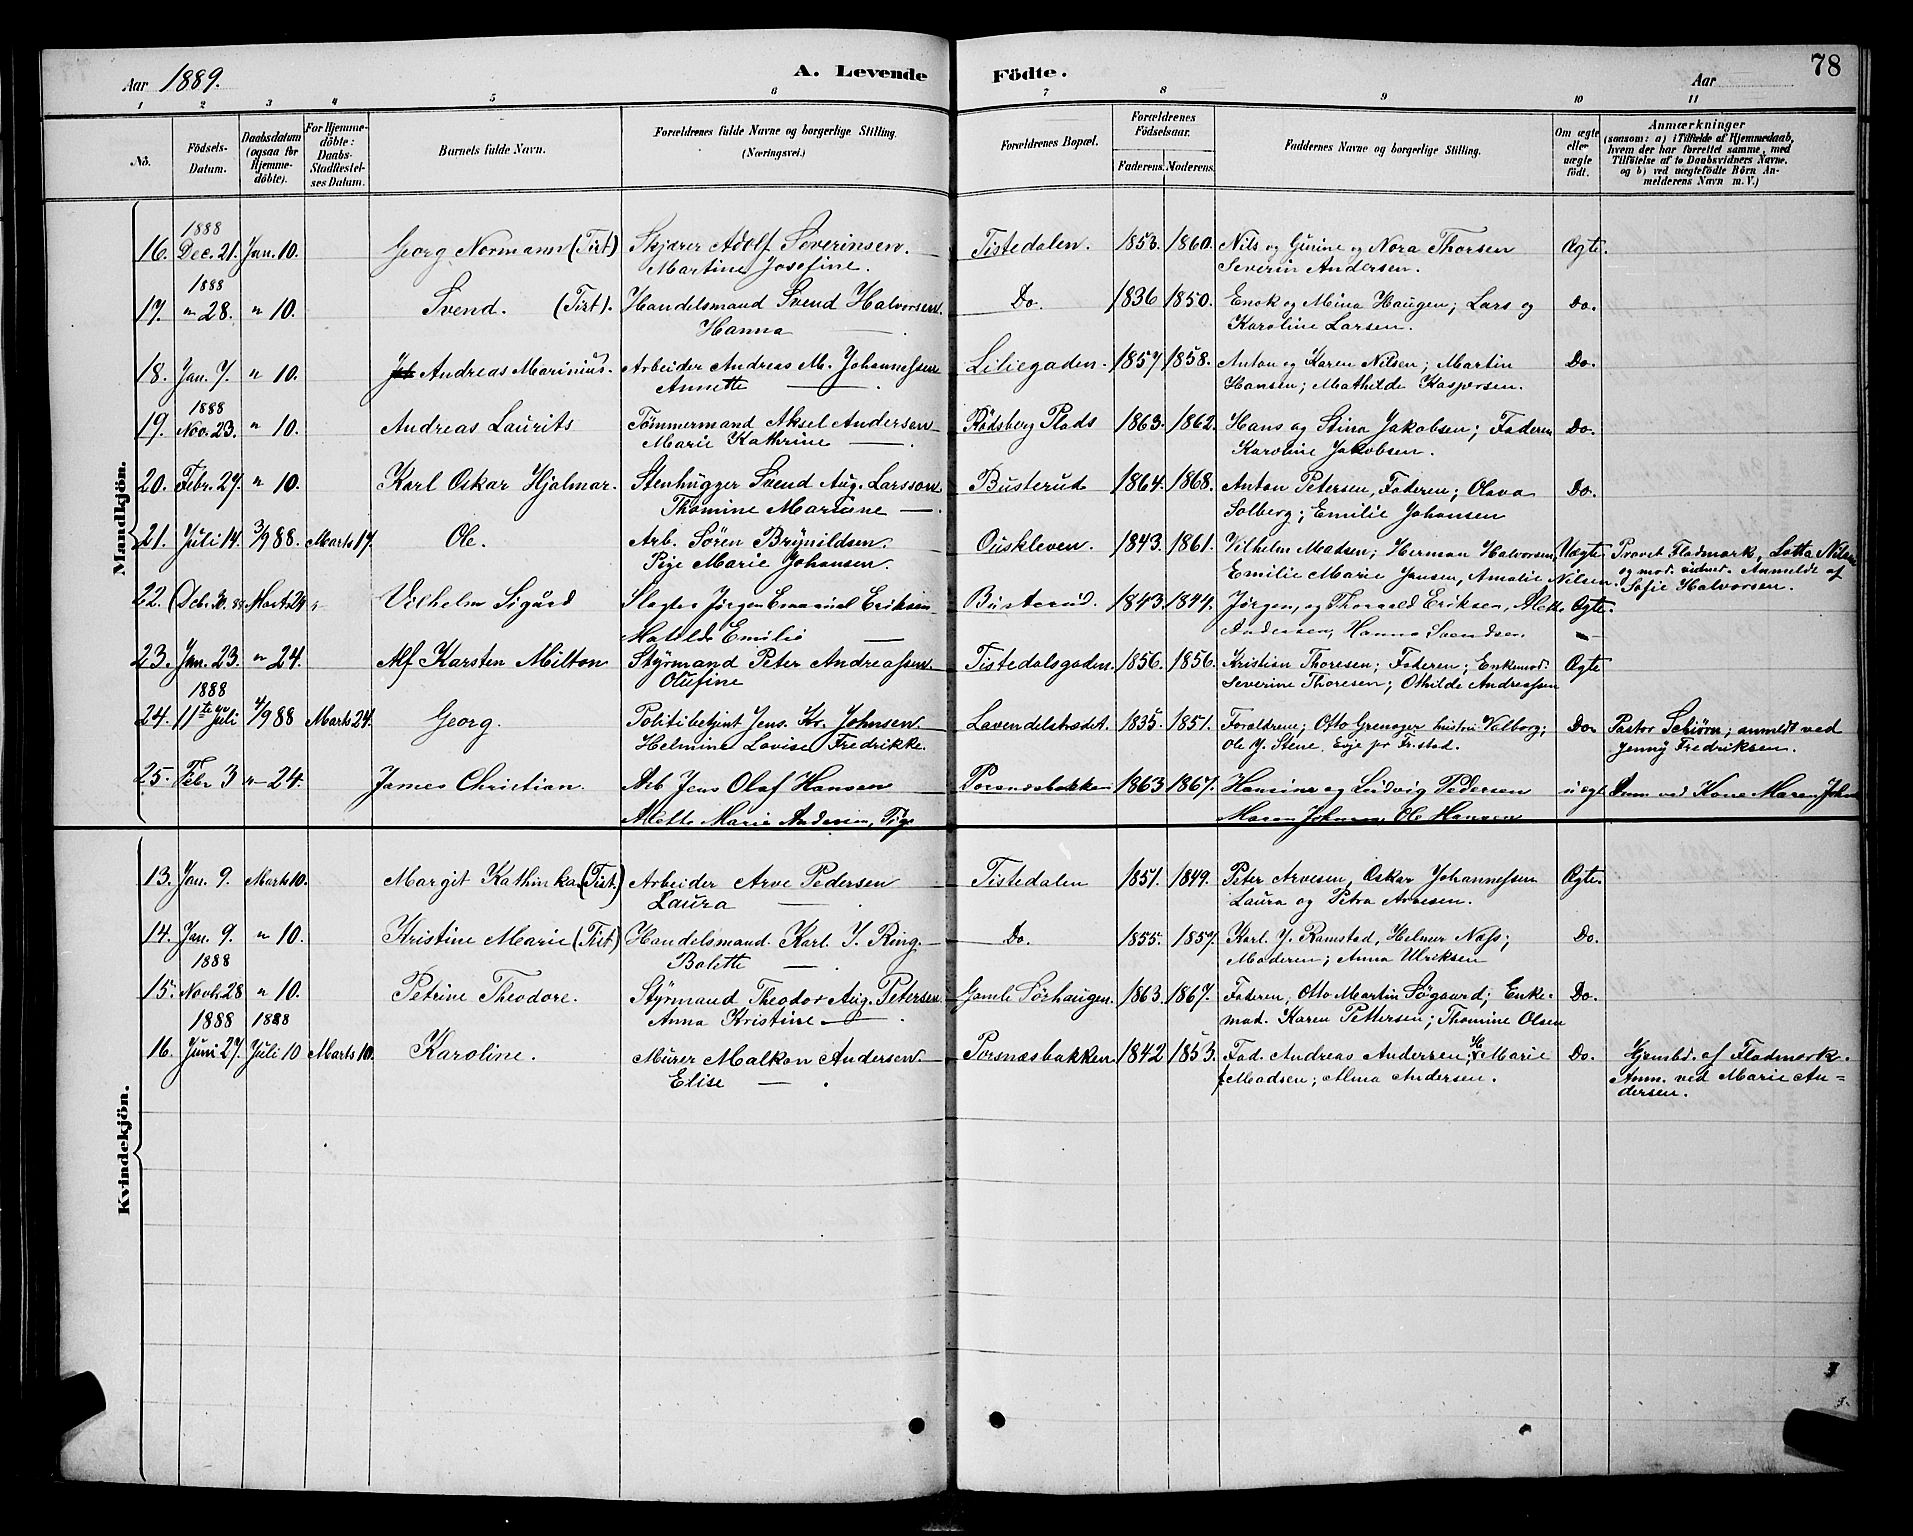 Aar 1889. A. Levende Födte. Aar 78
1 2 3 4 5 6 7 8 9 10 11
No. Födsels-Datum. Daabsdatum (ogsaa for Hjemmedöbte). For Hjemmedöbte: Daabs-Stadfæstelses Datum. Barnets fulde Navn. Forældrenes fulde Navne og borgerlige Stilling. (Næringsvei.) Forældrenes Bopæl. Forældrenes Födselsaar. Faderens. Moderens. Faddernes Navne og borgerlige Stilling. Om ægte eller uægte födt. Anmærkninger (saasom: a) i Tilfælde af Hjemmedaab, hvem der har forrettet samme, med Tilföielse af to Daabsvidners Navne. og b) ved uægtefödte Börn Anmelderens Navn m. V.)
Mandkjön.
1888
16. Dec. 21. Jan. 10. Georg Normann (Tist) Skjærer Adolf Severinsen. Tistedalen. 1853. 1860. Nils og Gurine og Nora Thorsen Ægte.
Martine Josefine. Severin Andersen.
1888
17. " 28. " 10. Svend. (Tist). Handelsmand Svend Halvorsen. Do. 1836 1850. Enok og Mina Haugen; Lars og Do.
Hanna — Karoline Larsen.
18. Jan. 7. " 10. Andreas Marinius. Arbeider Andreas M. Johannessen Liliegaden. 1857 1858. Anton og Karen Nilsen; Martin Do.
Annette — . Hansen; Mathilde Kaspersen.
1888
19. Nov. 23. " 10. Andreas Laurits Tömmermand Aksel Andersen Rödsberg Plads 1863. 1862. Hans og Stina Jakobsen; Faderen Do.
Marie Kathrine — Karoline Jakobsen.
20. Febr. 27. " 10. Karl Oskar Hjalmar. Stenhugger Svend Aug. Larsson Busterud 1864. 1868. Anton Petersen, Faderen; Olava Do.
Thomine Mariane — . Solberg; Emilie Johansen
21. Juli 14. 3/9 88. Marts 17. Ole. Arb. Sören Brynildsen. Ouskleven. 1843. 1861. Vilhelm Madsen; Herman Halvorsen, Uægte. Provst Fladmark, Lotta Nilsen
Pige Marie Johansen. Emilie Marie Jansen, Amalie Nilsen. og mod. vidnet. Anmeldt af
Sofie Halvorsen.
22. Dcb. 30. 88 Marts 24 Vilhelm Sigurd Slagter Jörgen Emanuel Eriksen Busterud. 1843. 1844. Jörgen, og Thorvald Eriksen, Ægte.
Matilde Emilie — Andersen, Hanna Svendsen
23. Jan. 23. " 24. Alf Karsten Milton Styrmand Peter Andreassen. Tistedalsgaden. 1856. 1856. Kristian Thoresen; Faderen; Enkemad. Ægte
Olufine Severine Thoresen; Othilde Andreassen
1888
24. 11te Juli 4/9 88 Marts 24. Georg. Politibetjent Jens Kr. Johnsen Lavendelstrædet. 1835. 1851. Forældrene; Otto Grenager hustru Valborg; Do. Pastor Schiörn; anmeldt ved
Helmine Lovise Fredrikke. Ole J. Stene, Evje pr Fr.stad. Jenny Fredriksen.
25. Febr 3 " 24. James Christian. Arb Jens Olaf Hansen Porsnesbakken 1863 1867. Hansine og Ludvig Pedersen uægt Anm ved Kone Maren John
Mette Marie Andersen, Pige Maren Johnsen, Ole Hansen
Kvindekjön.
13. Jan. 9. Marts 10. Margit Kathinka (Tist.) Arbeider Arve Pedersen Tistedalen 1851. 1849. Peter Arvesen, Oskar Johannessen Ægte.
Laura — Laura og Petra Arvesen.
14. Jan. 9. " 10. Kristine Marie (Tist) Handelsmand Karl J. Ring. Do. 1855. 1857. Karl J. Ramstad, Helmer Næss; Do.
Bolette — . Moderen; Anna Ulriksen
1888
15. Novb. 28 " 10. Petrine Theodore. Styrmand Theodor Aug. Petersen Gamle Sörhaugen. 1863. 1867. Faderen, Otto Martin Sögaard; Enke- Do.
Anna Kristine — . mad. Karen Pettersen; Thomine Olsen
1888 1888
16. Juni 27. Juli 10 Marts 10. Karoline. Murer Malkon Andersen Porsnæsbakken 1842 1853. Fad. Andreas Andersen; H Marie Do. Hjemdb. af Fladmark.
Elise — . Madsen; Alma Andersen. Anm. ved Marie An-
dersen.